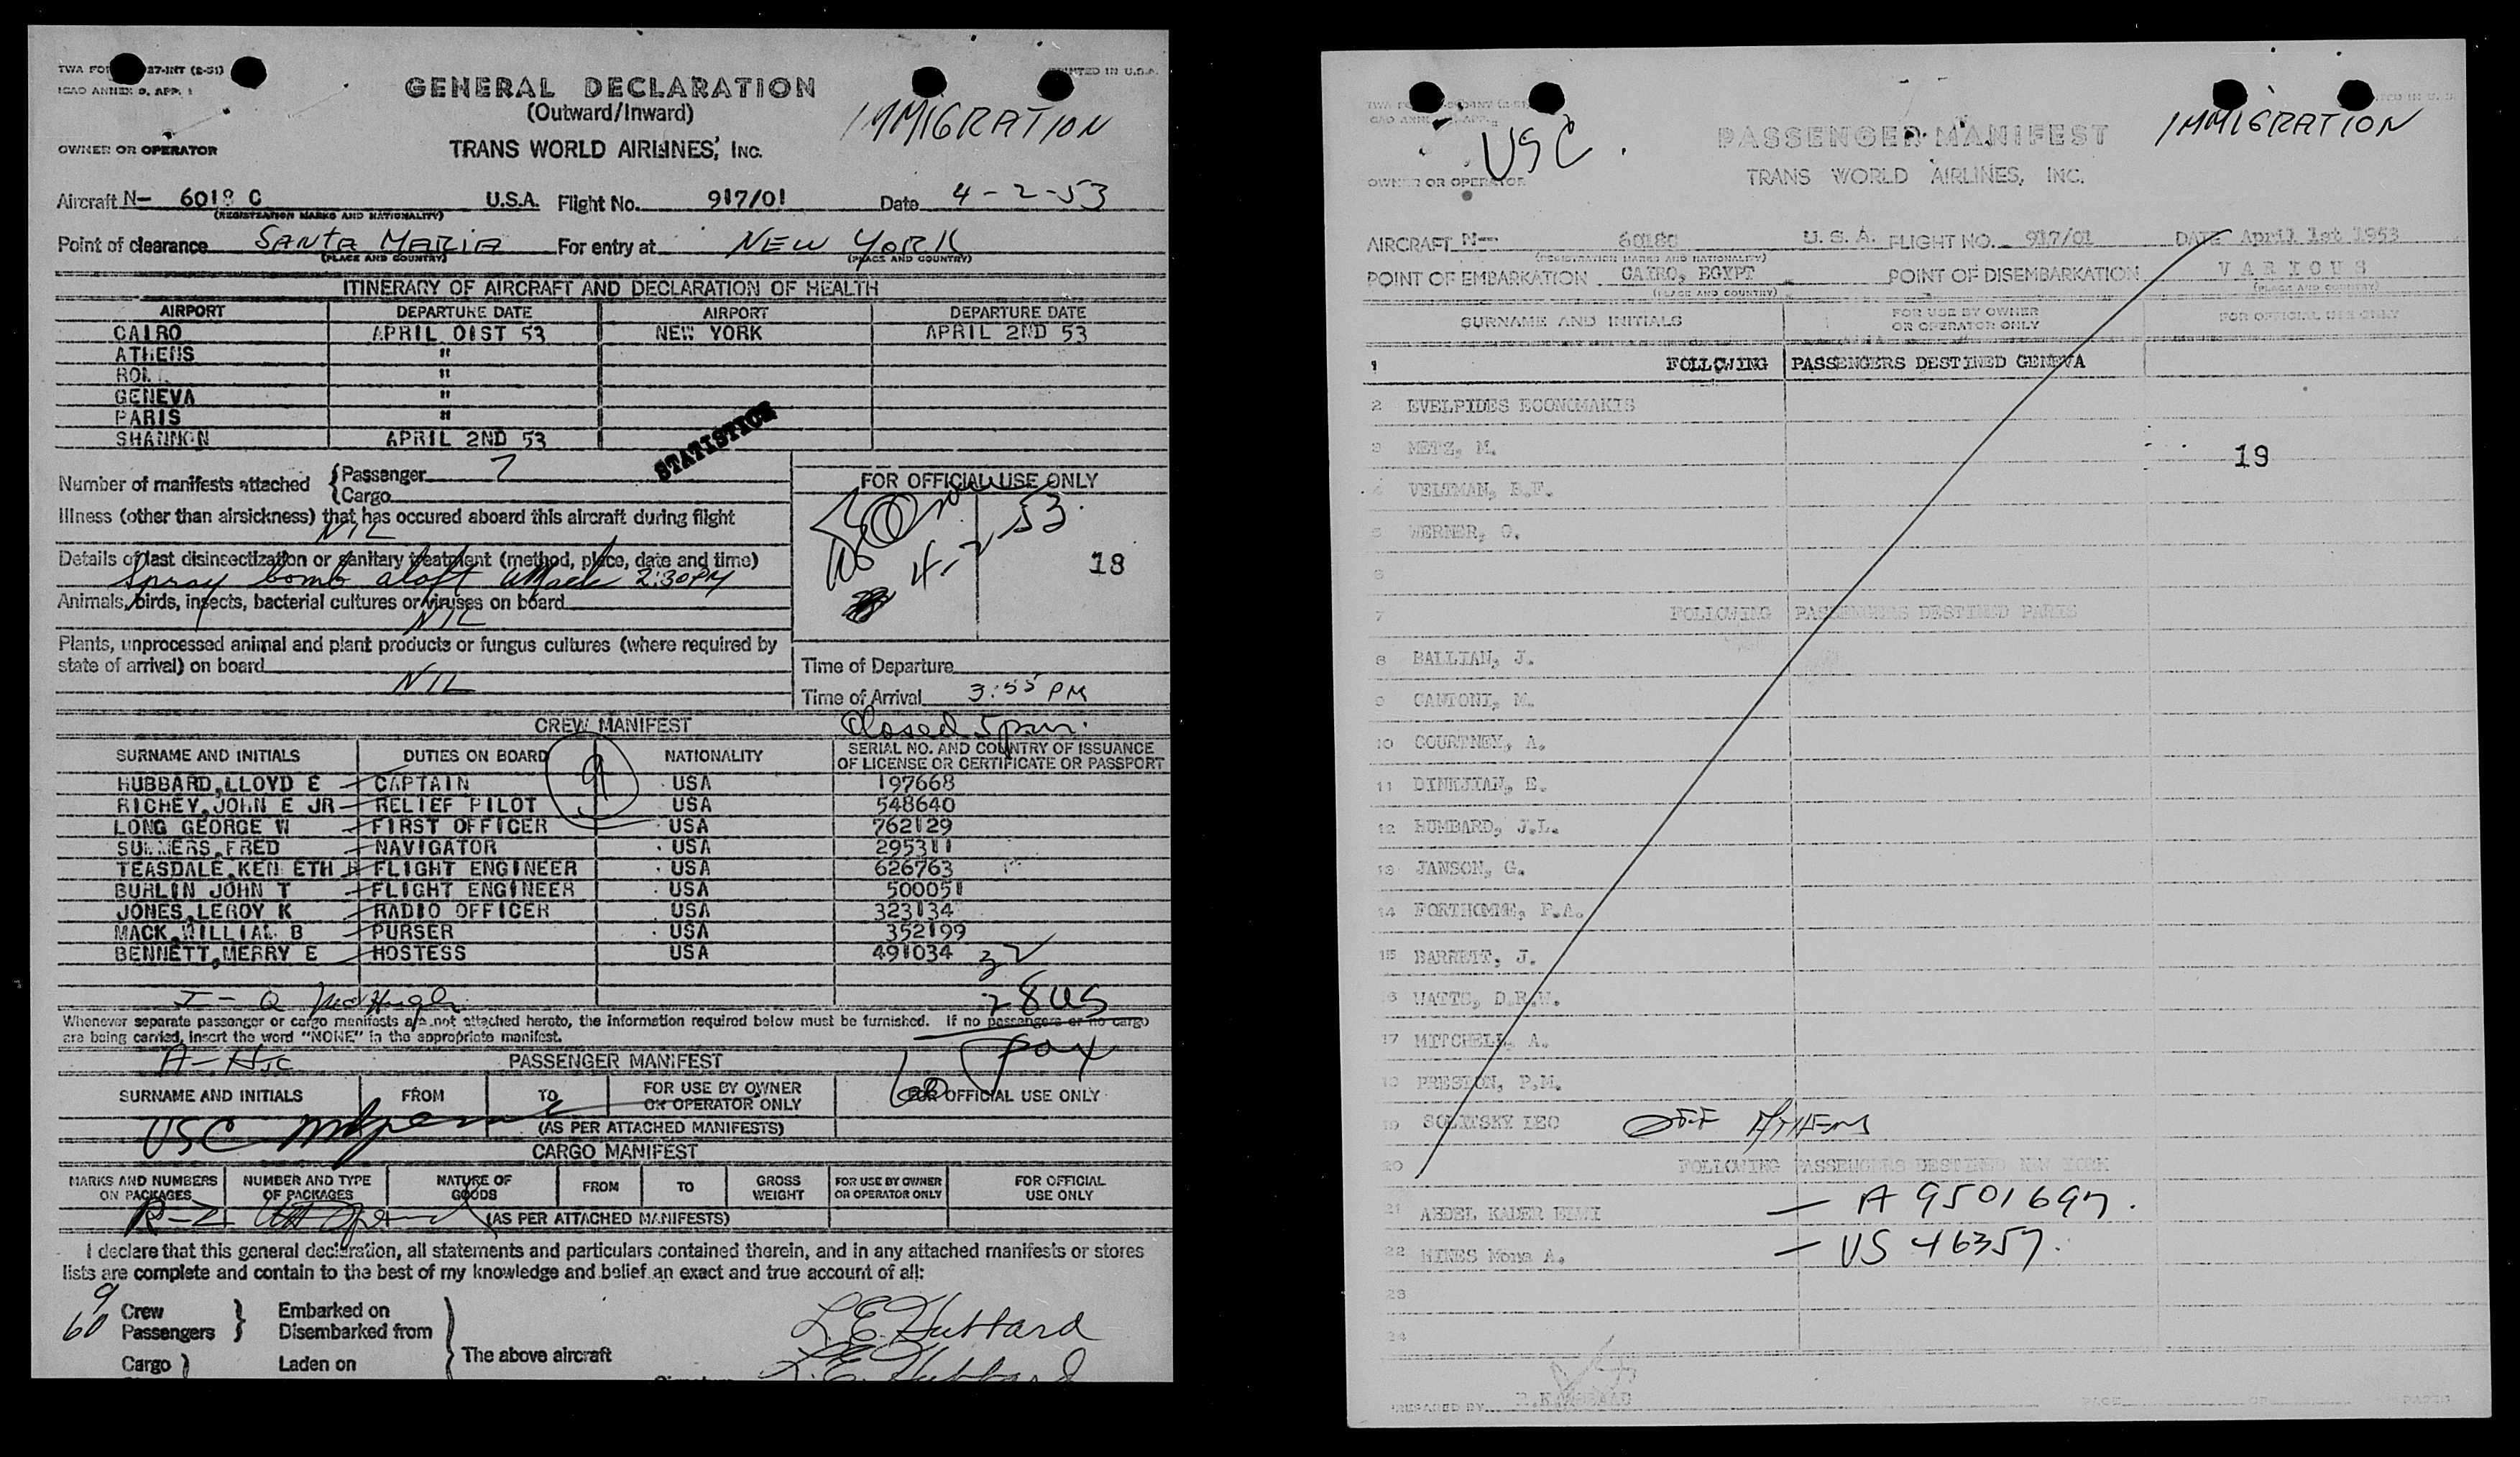 TWA FOR 27-INT (2-51)
PRINTED IN U.S.A.
ICAO ANNEX 9, APP. 1
GENERAL DECLARATION
(Outward/Inward)
IMMIGRATION
OWNER OR OPERATOR
TRANS WORLD AIRLINES, INC.
Aircraft N- 6018 C U.S.A. Flight No. 917/01 Date 4-2-53
(REGISTRATION MARKS AND NATIONALITY)
Point of clearance SANTA MARIA For entry at NEW YORK
(PLACE AND COUNTRY) (PLACE AND COUNTRY)
ITINERARY OF AIRCRAFT AND DECLARATION OF HEALTH
AIRPORT DEPARTURE DATE AIRPORT DEPARTURE DATE
CAIRO APRIL 01ST 53 NEW YORK APRIL 2ND 53
ATHENS "
ROM "
GENEVA "
PARIS "
SHANNON APRIL 2ND 53
STATISTICS
Number of manifests attached { Passenger 7
Cargo
FOR OFFICIAL USE ONLY
Illness (other than airsickness) that has occured aboard this aircraft during flight
NIL
4-2-53
18
Details of last disinsectization or sanitary treatment (method, place, date and time)
Spray bomb aloft WMack 2:30PM
Animals, birds, insects, bacterial cultures or viruses on board
NIL
Plants, unprocessed animal and plant products or fungus cultures (where required by
state of arrival) on board
NIL
Time of Departure
Time of Arrival 3:55 PM
CREW MANIFEST
Closed 5pm.
SURNAME AND INITIALS DUTIES ON BOARD 9 NATIONALITY SERIAL NO. AND COUNTRY OF ISSUANCE
OF LICENSE OR CERTIFICATE OR PASSPORT
HUBBARD,LLOYD E CAPTAIN USA 197668
RICHEY,JOHN E JR RELIEF PILOT USA 548640
LONG GEORGE W FIRST OFFICER USA 762129
SUMMERS,FRED NAVIGATOR USA 295311
TEASDALE,KEN ETH R FLIGHT ENGINEER USA 626763
BURLIN JOHN T FLIGHT ENGINEER USA 500051
JONES,LEROY K RADIO OFFICER USA 323134
MACK,WILLIAM B PURSER USA 352199
BENNETT,MERRY E HOSTESS USA 491034
32
I - Q McHugh
28 US
Whenever separate passenger or cargo manifests are not attached hereto, the information required below must be furnished. If no passengers or no cargo
are being carried, insert the word "NONE" in the appropriate manifest.
60 pax
PASSENGER MANIFEST
SURNAME AND INITIALS FROM TO FOR USE BY OWNER
OR OPERATOR ONLY FOR OFFICIAL USE ONLY
USC
(AS PER ATTACHED MANIFESTS)
CARGO MANIFEST
MARKS AND NUMBERS
ON PACKAGES NUMBER AND TYPE
OF PACKAGES NATURE OF
GOODS FROM TO GROSS
WEIGHT FOR USE BY OWNER
OR OPERATOR ONLY FOR OFFICIAL
USE ONLY
R-2
(AS PER ATTACHED MANIFESTS)
I declare that this general declaration, all statements and particulars contained therein, and in any attached manifests or stores
lists are complete and contain to the best of my knowledge and belief an exact and true account of all:
9 Crew Embarked on
60 Passengers Disembarked from
Cargo Laden on
The above aircraft
L.E. Hubbard
L.E. Hubbard
USC
IMMIGRATION
PASSENGER MANIFEST
OWNER OR OPERATOR
TRANS WORLD AIRLINES, INC.
AIRCRAFT N- 6018C U. S. A. FLIGHT NO. 917/01 DATE April 1st 1953
(REGISTRATION MARKS AND NATIONALITY)
POINT OF EMBARKATION CAIRO, EGYPT POINT OF DISEMBARKATION VARIOUS
(PLACE AND COUNTRY) (PLACE AND COUNTRY)
SURNAME AND INITIALS FOR USE BY OWNER
OR OPERATOR ONLY FOR OFFICIAL USE ONLY
1 FOLLOWING PASSENGERS DESTINED GENEVA
2 EVELPIDES ECONOMAKIS
3 METZ, M.
19
4 VELTMAN, B.F.
5 WERNER, O.
6
7 FOLLOWING PASSENGERS DESTINED PARIS
8 BALLIAN, J.
9 CANTONI, M.
10 COURTNEY, A.
11 DINKJIAN, E.
12 HUMBARD, J.L.
13 JANSON, G.
14 FORTHOMME, P.A.
15 BARRETT, J.
16 WATTS, D.R.W.
17 MITCHELL, A.
18 PRESTON, P.M.
19 SOLITSKY LEO OFF ATHENS
20 FOLLOWING PASSENGERS DESTINED NEW YORK
21 ABDEL KADER ELMI — A 9501697.
22 HINES Mona A. — US 46357.
23
24
PREPARED BY
PAGE OF PAGES